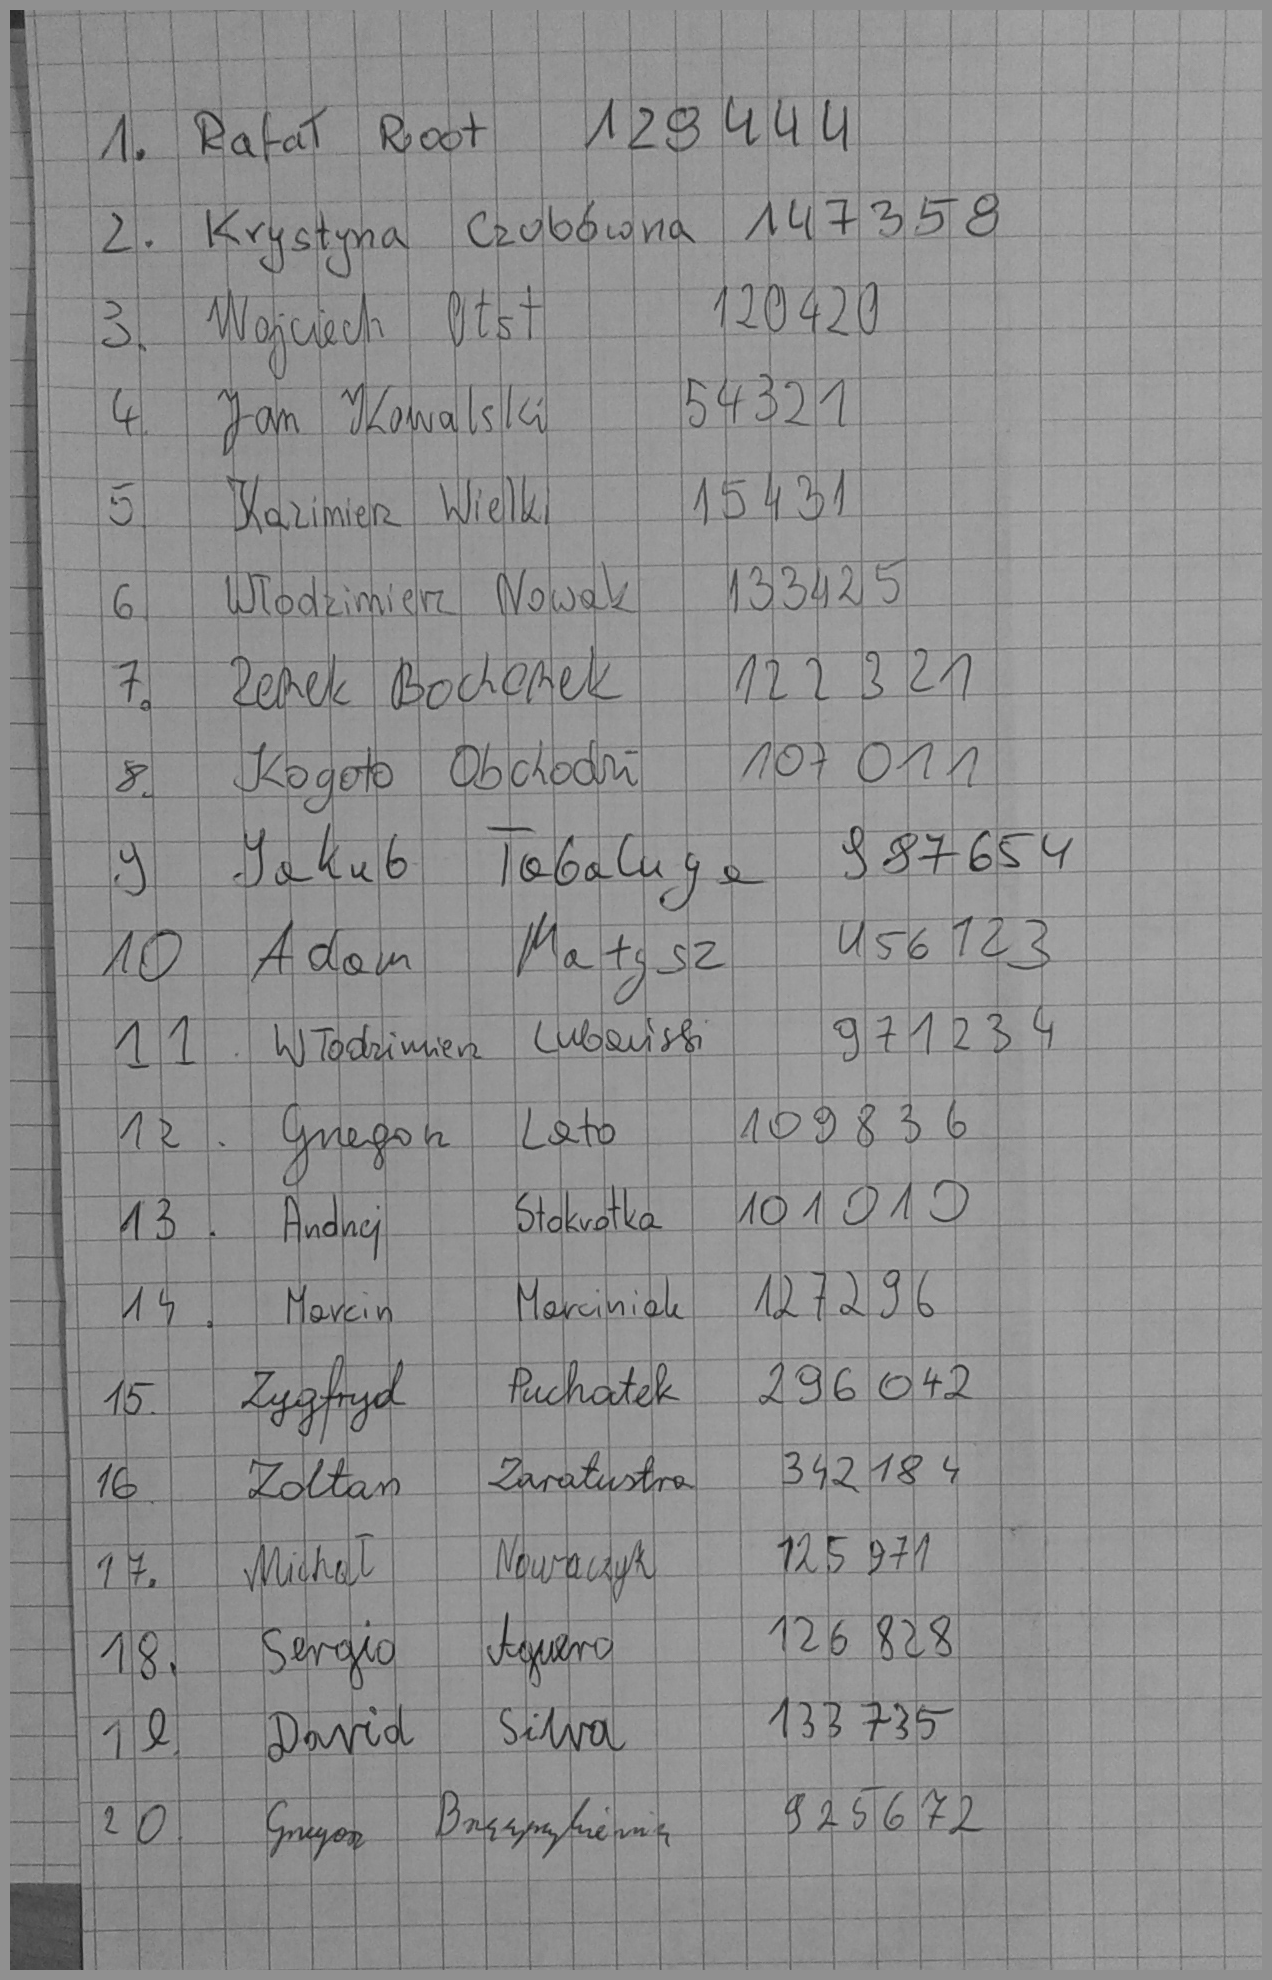 1. Rafał Root 129444
2. Krystyna Czubówna 147358
3. Wojciech Otst 120420
4. Jan Kowalski 54321
5 Kazimierz Wielki 15431
6 Włodzimierz Nowak 133425
7. Zenek Bochenek 122321
8. Kogoto Obchodzi 107011
9 Jakub Tabaluga 987654
10 Adam Małysz 456123
11. Włodzimierz 971234
12. Grzegorz Lato 109836
13. Andrzej Stokrotka 101010
14. Marcin Marciniak 127296
15. Zygfryd Puchatek 296042
16 Zoltan Zaratustra 342184
17. Michał Nowaczyk 125971
18. Sergio Aguero 126828
19. David Silva 133735
20. Grzegorz 925672